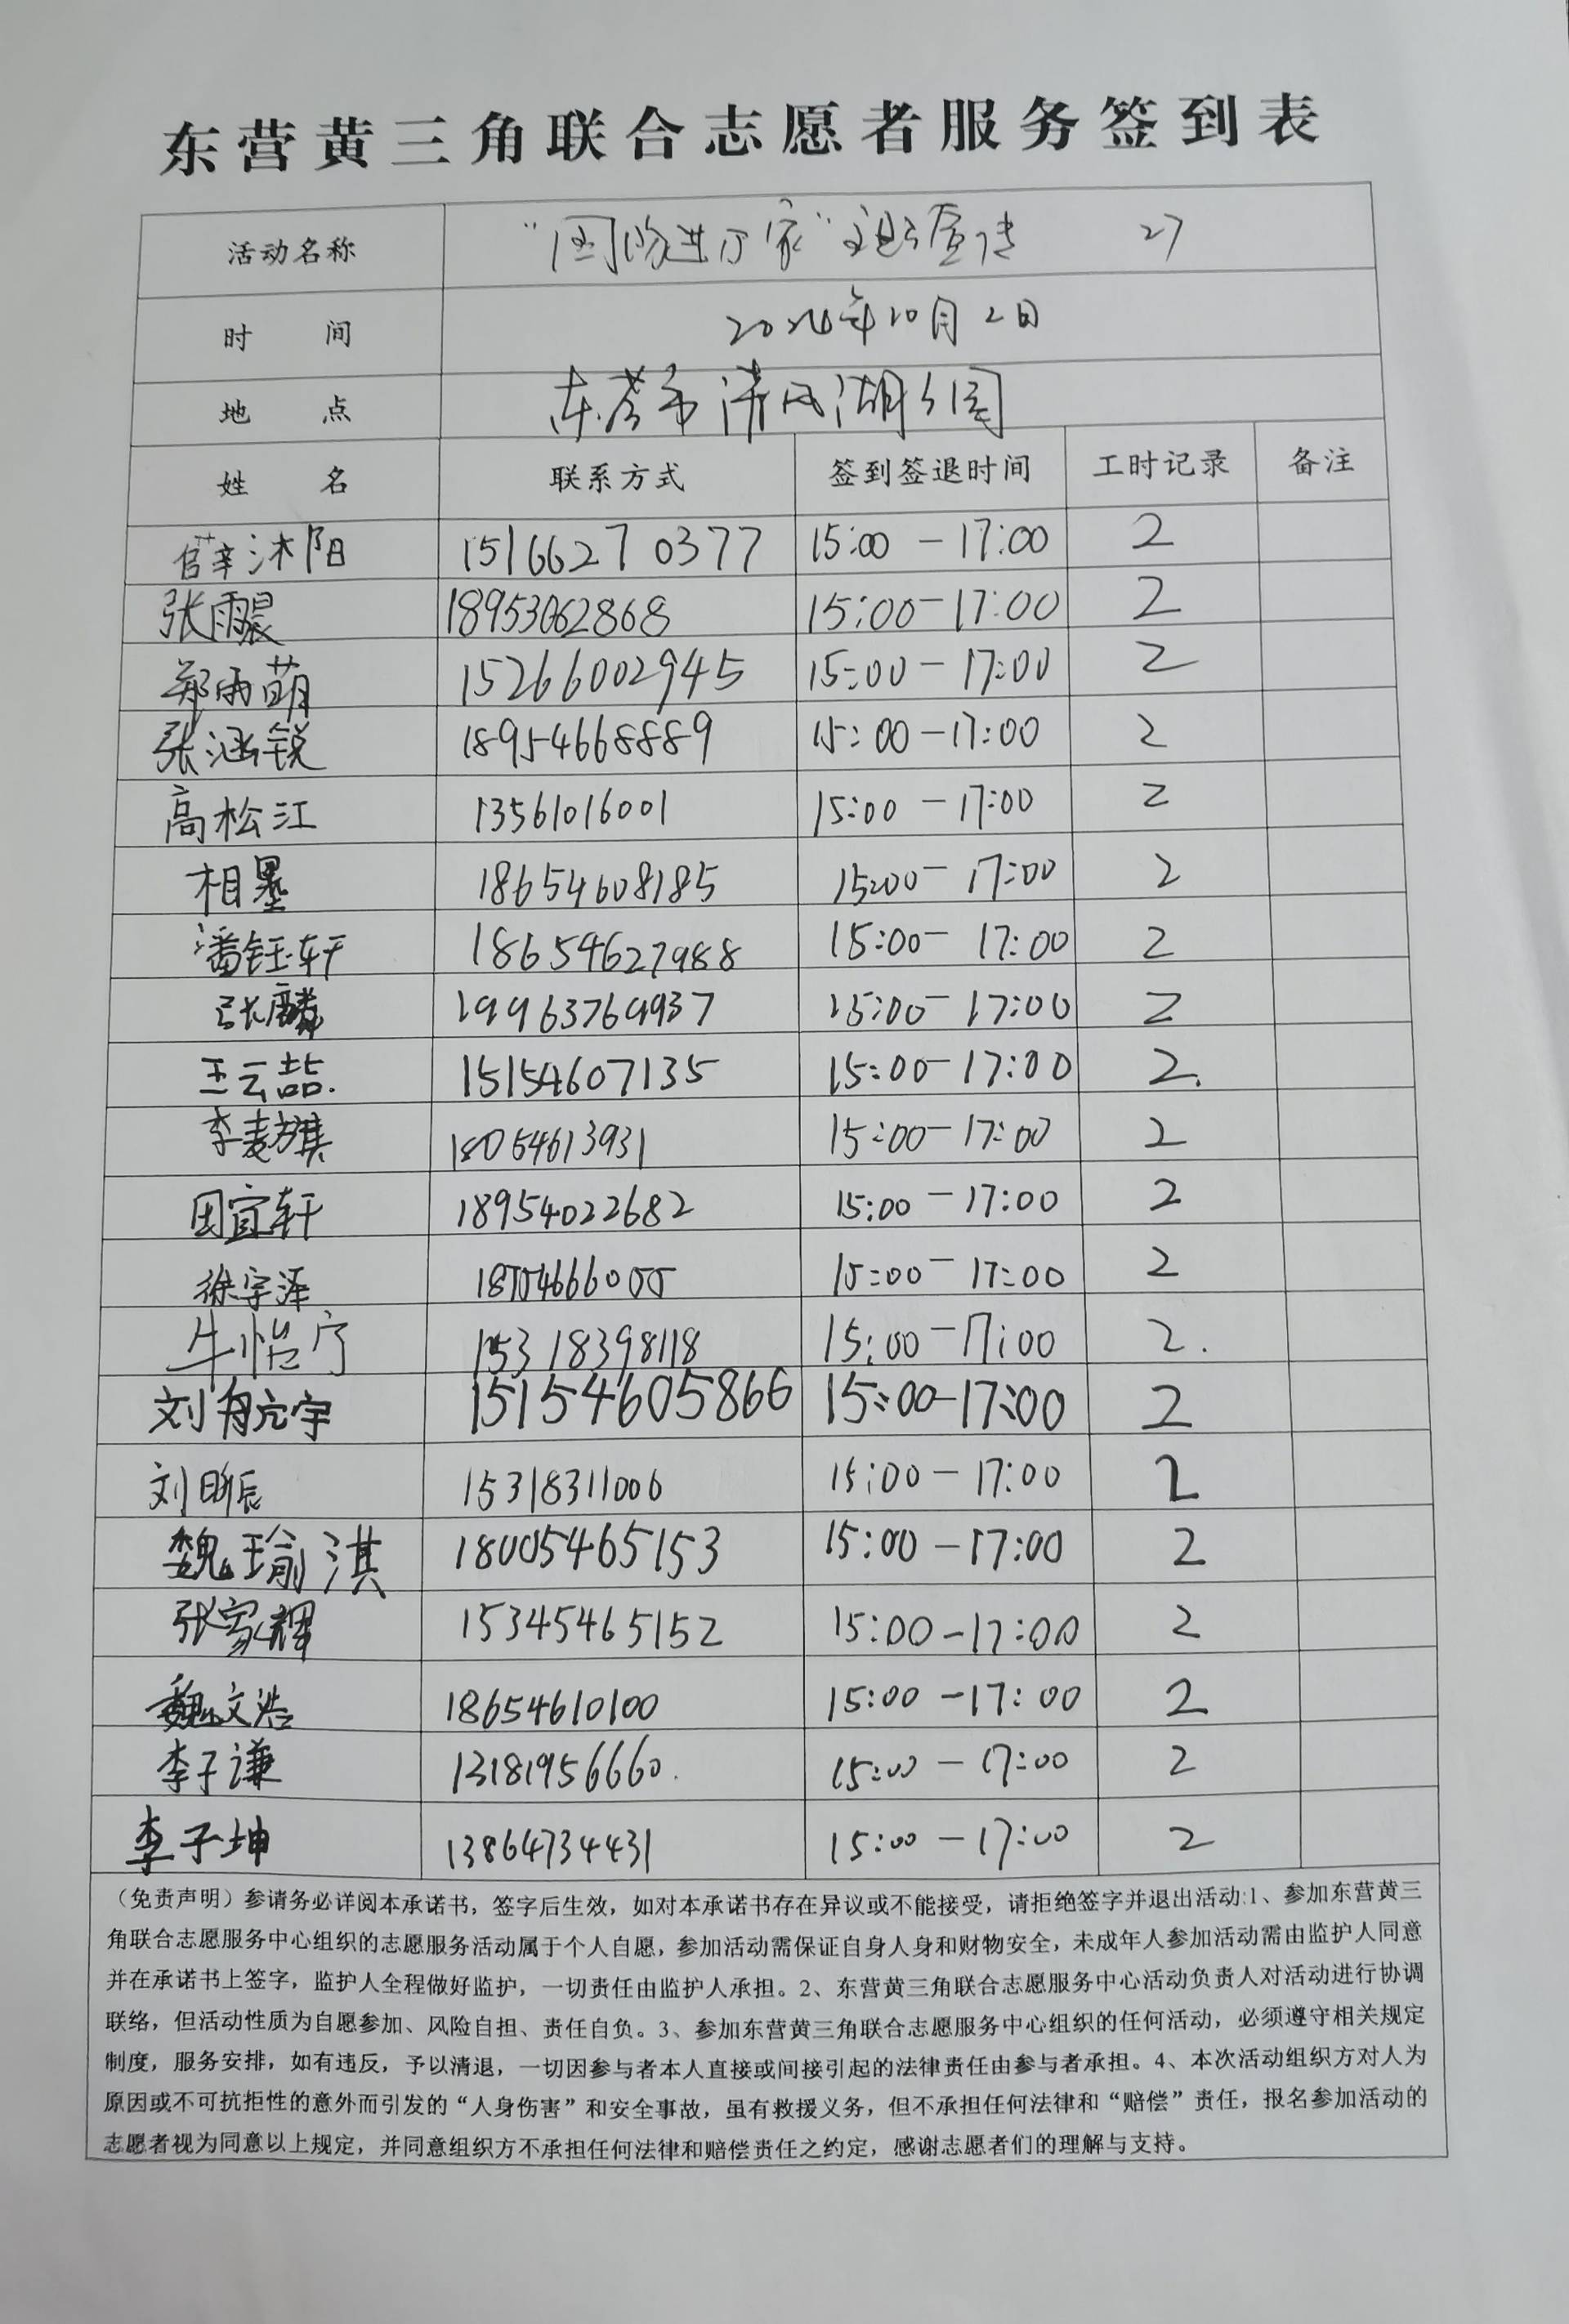 东营黄三角联合志愿者服务签到表
活动名称 “国防进万家”主题宣传 27
时 间 2024年10月2日
地 点 东营市清风湖公园
姓 名 联系方式 签到签退时间 工时记录 备注
薛沐阳 15166270377 15:00-17:00 2
张雨晨 18953062868 15:00-17:00 2
郑雨萌 15266002945 15:00-17:00 2
张涵锐 18954668889 15:00-17:00 2
高松江 13561016001 15:00-17:00 2
相墨 18654608185 15:00-17:00 2
潘钰轩 18654627988 15:00-17:00 2
张麟 19963769937 15:00-17:00 2
王云喆. 15154607135 15:00-17:00 2.
李麦旗 18054613931 15:00-17:00 2
田宜轩 18954022682 15:00-17:00 2
徐宇泽 15:00-17:00 2
牛怡宁 15318398118 15:00-17:00 2.
刘有元宇 15154605866 15:00-17:00 2
刘昕辰 15318311006 15:00-17:00 2
魏瑜淇 18005465153 15:00-17:00 2
张家辉 15345465152 15:00-17:00 2
魏文浩 18654610100 15:00-17:00 2
李子谦 13181956660. 15:00-17:00 2
李子坤 13864734431 15:00-17:00 2
（免责声明）参请务必详阅本承诺书，签字后生效，如对本承诺书存在异议或不能接受，请拒绝签字并退出活动:1、参加东营黄三
角联合志愿服务中心组织的志愿服务活动属于个人自愿，参加活动需保证自身人身和财物安全，未成年人参加活动需由监护人同意
并在承诺书上签字，监护人全程做好监护，一切责任由监护人承担。2、东营黄三角联合志愿服务中心活动负责人对活动进行协调
联络，但活动性质为自愿参加、风险自担、责任自负。3、参加东营黄三角联合志愿服务中心组织的任何活动，必须遵守相关规定
制度，服务安排，如有违反，予以清退，一切因参与者本人直接或间接引起的法律责任由参与者承担。4、本次活动组织方对人为
原因或不可抗拒性的意外而引发的“人身伤害”和安全事故，虽有救援义务，但不承担任何法律和“赔偿”责任，报名参加活动的
志愿者视为同意以上规定，并同意组织方不承担任何法律和赔偿责任之约定，感谢志愿者们的理解与支持。